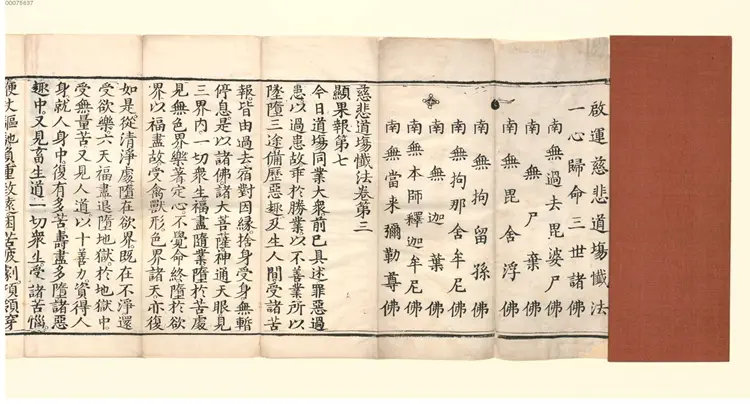 00075637
啟運慈悲道塲懺法
一心歸命三世諸佛
南無過去毘婆尸佛
南無尸棄佛
南無毘舍浮佛
南無拘留孫佛
南無拘那含牟尼佛
南無迦葉佛
南無本師釋迦牟尼佛
南無當来彌勒尊佛
慈悲道塲懺法卷第三
顯果報第七
今日道塲同業大衆前已具述罪惡過
患以過患故乖於勝業以不善業所以
墜墮三途備歷惡趣及生人間受諸苦
報皆由過去宿對因緣捨身受身無暫
停息是以諸佛諸大菩薩神通天眼見
三界内一切衆生福盡隨業墮於苦處
見無色界樂著定心不覺命終墮於欲
界以福盡故受禽獸形色界諸天亦復
如是從清淨處墮在欲界既在不淨還
受欲樂六天福盡退墮地獄於地獄中
受無量苦又見人道以十善力資得人
身就人身中復有多苦壽盡多墮諸惡
趣中又見畜生道一切衆生受諸苦惱
鞭杖驅馳負重致遠困苦疲割項領穿